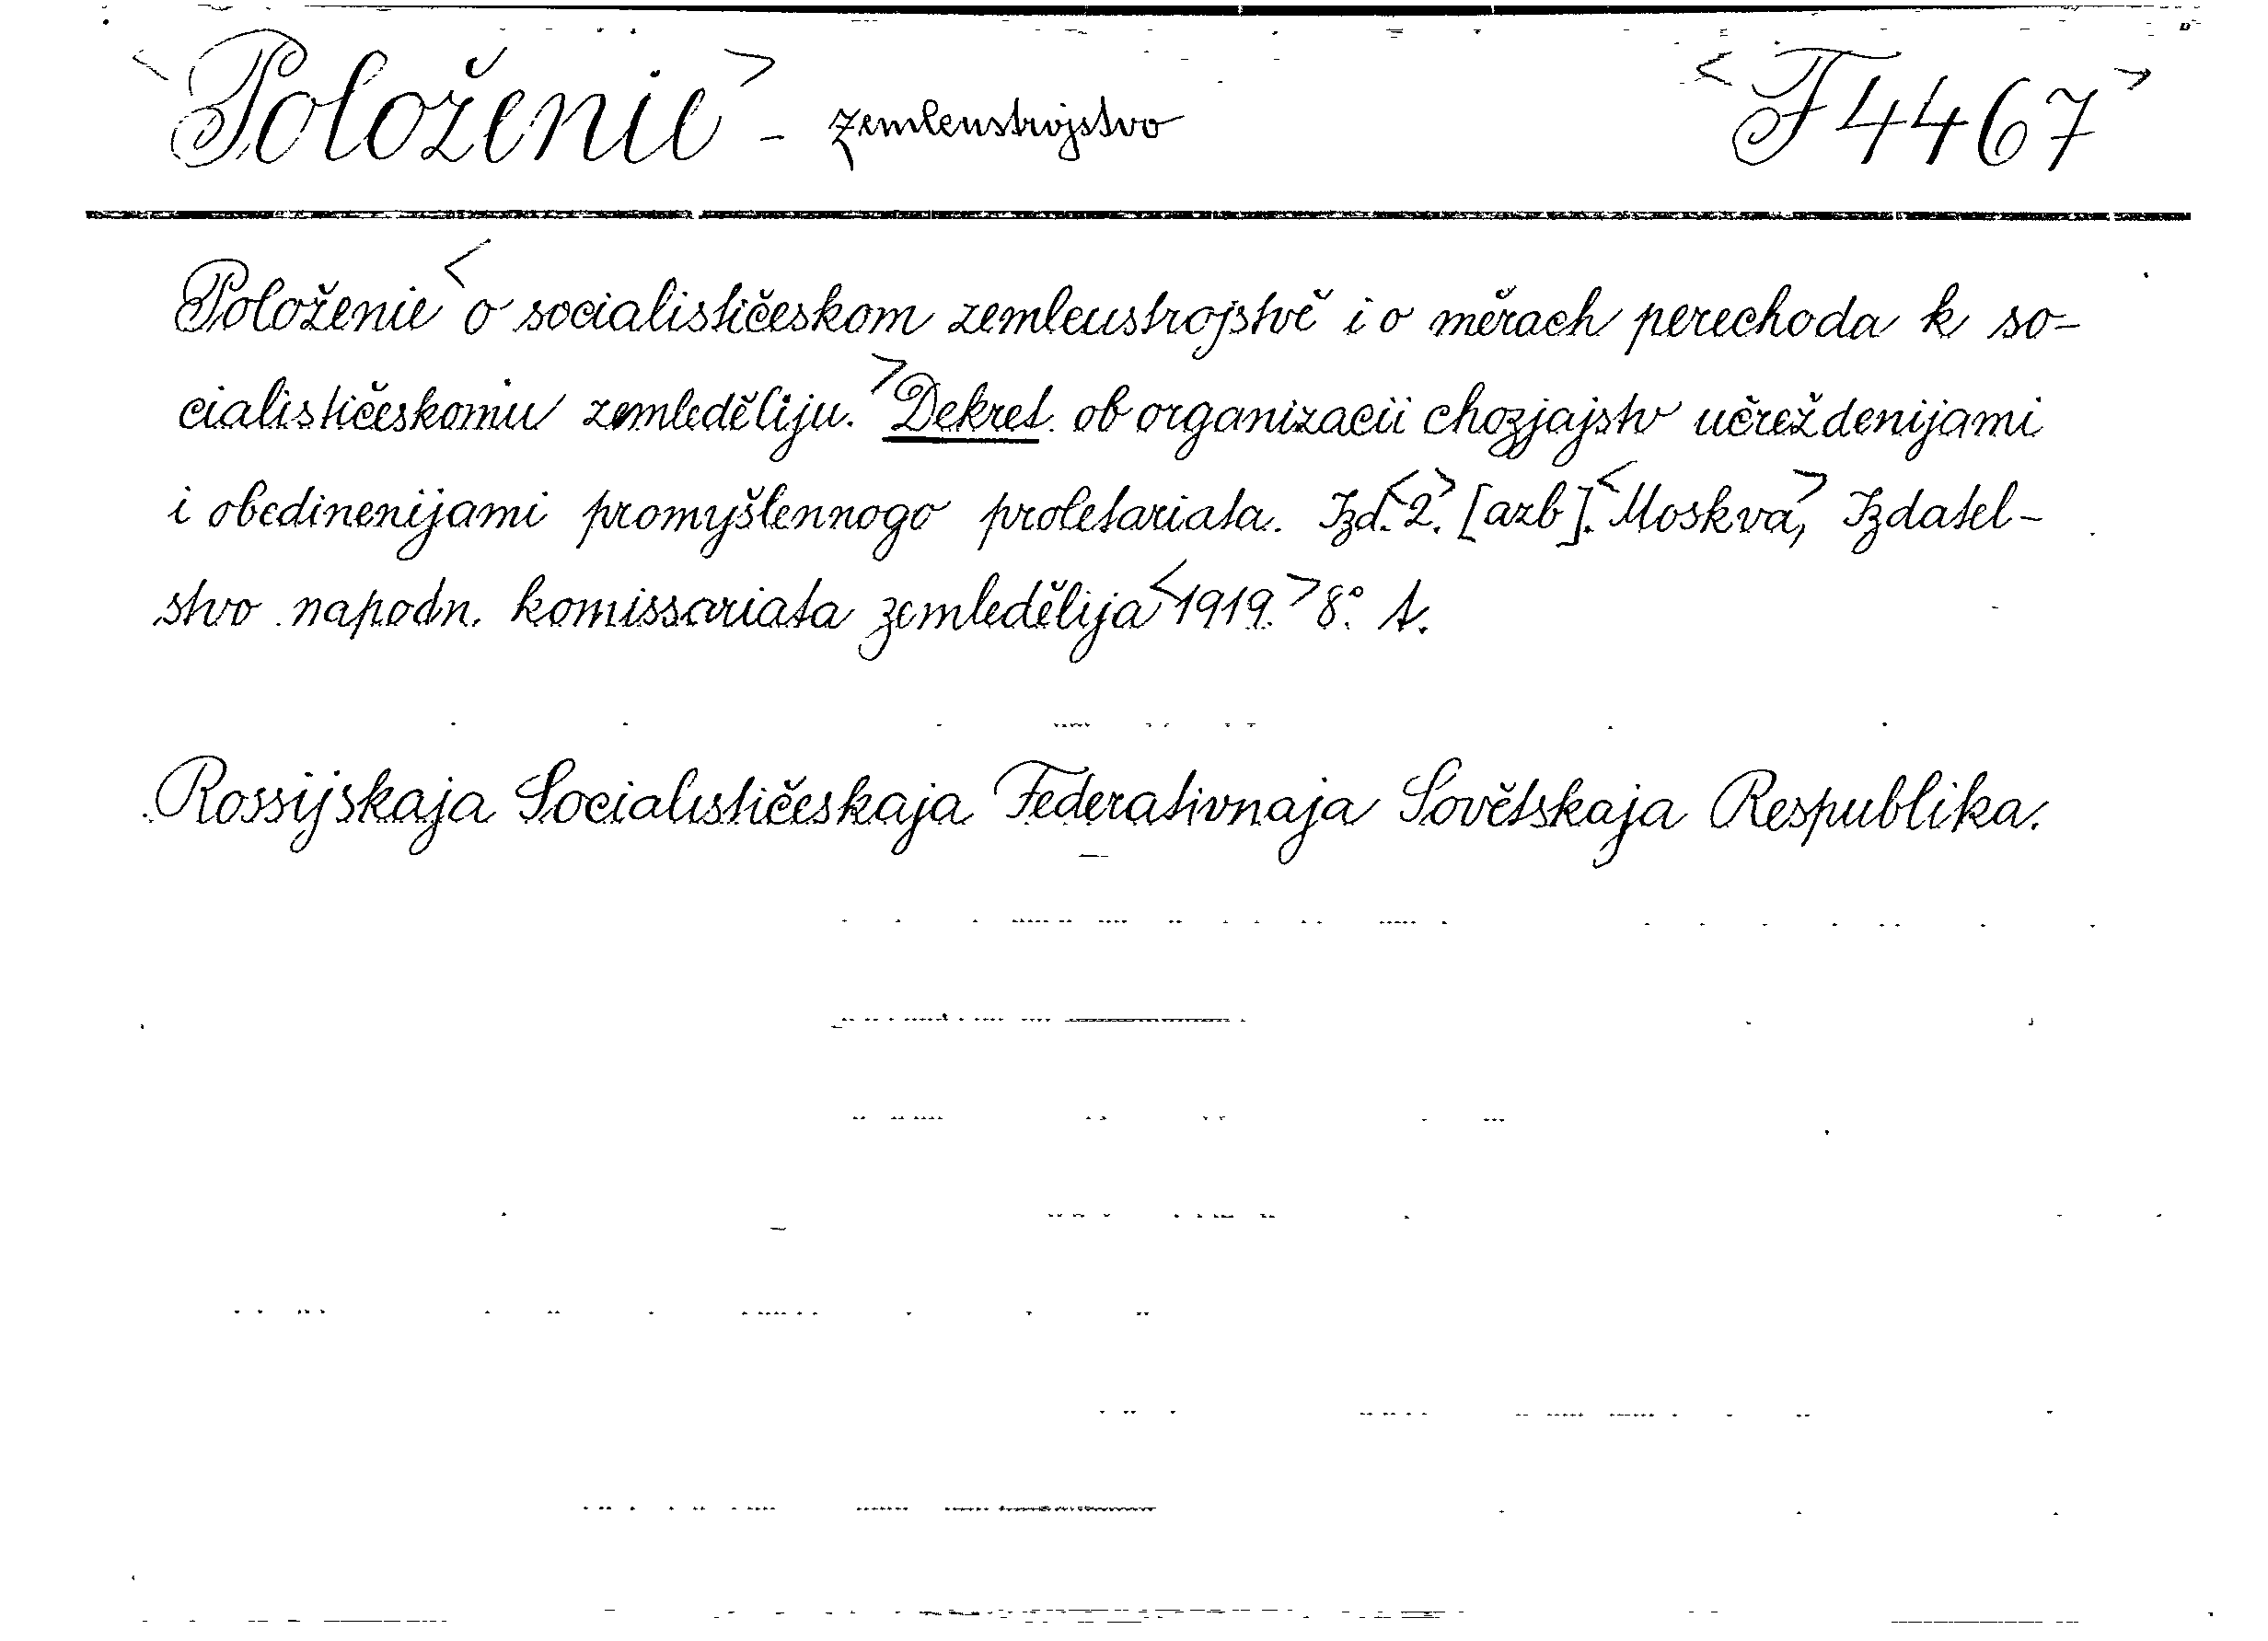 <Položenie> - zemleustrojstvo <F 4467>
Položenie < o socialističeskom zemleustrojstvě i o měrach perechoda k so-
cialističeskomu zemledĕliju. > Dekret ob organizacii chozjajstv učreždenijami
i obedinenijami promyšlennogo proletariata. Izd. <2.> [azb]. <Moskva,> Izdatel-
stvo napodn. komissariata zemledělija <1919.> 8°. t.
Rossijskaja Socialističeskaja Federativnaja Sovětskaja Respublika.